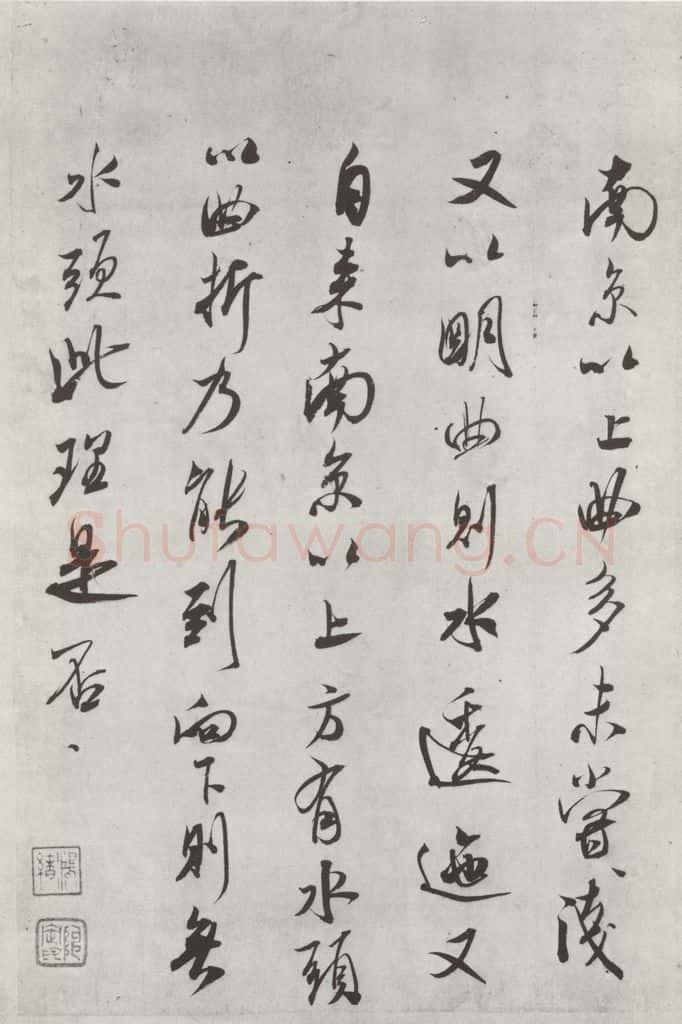 南京以上曲多未嘗淺
又以明曲則水逶迤又
自来南京以上方有水頭
以曲折乃能到向下則無
水頭此理是否
Shufawang.CN